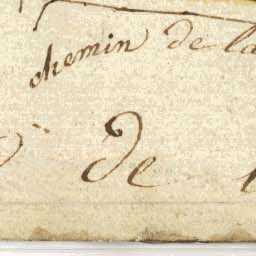 chemin de la
de